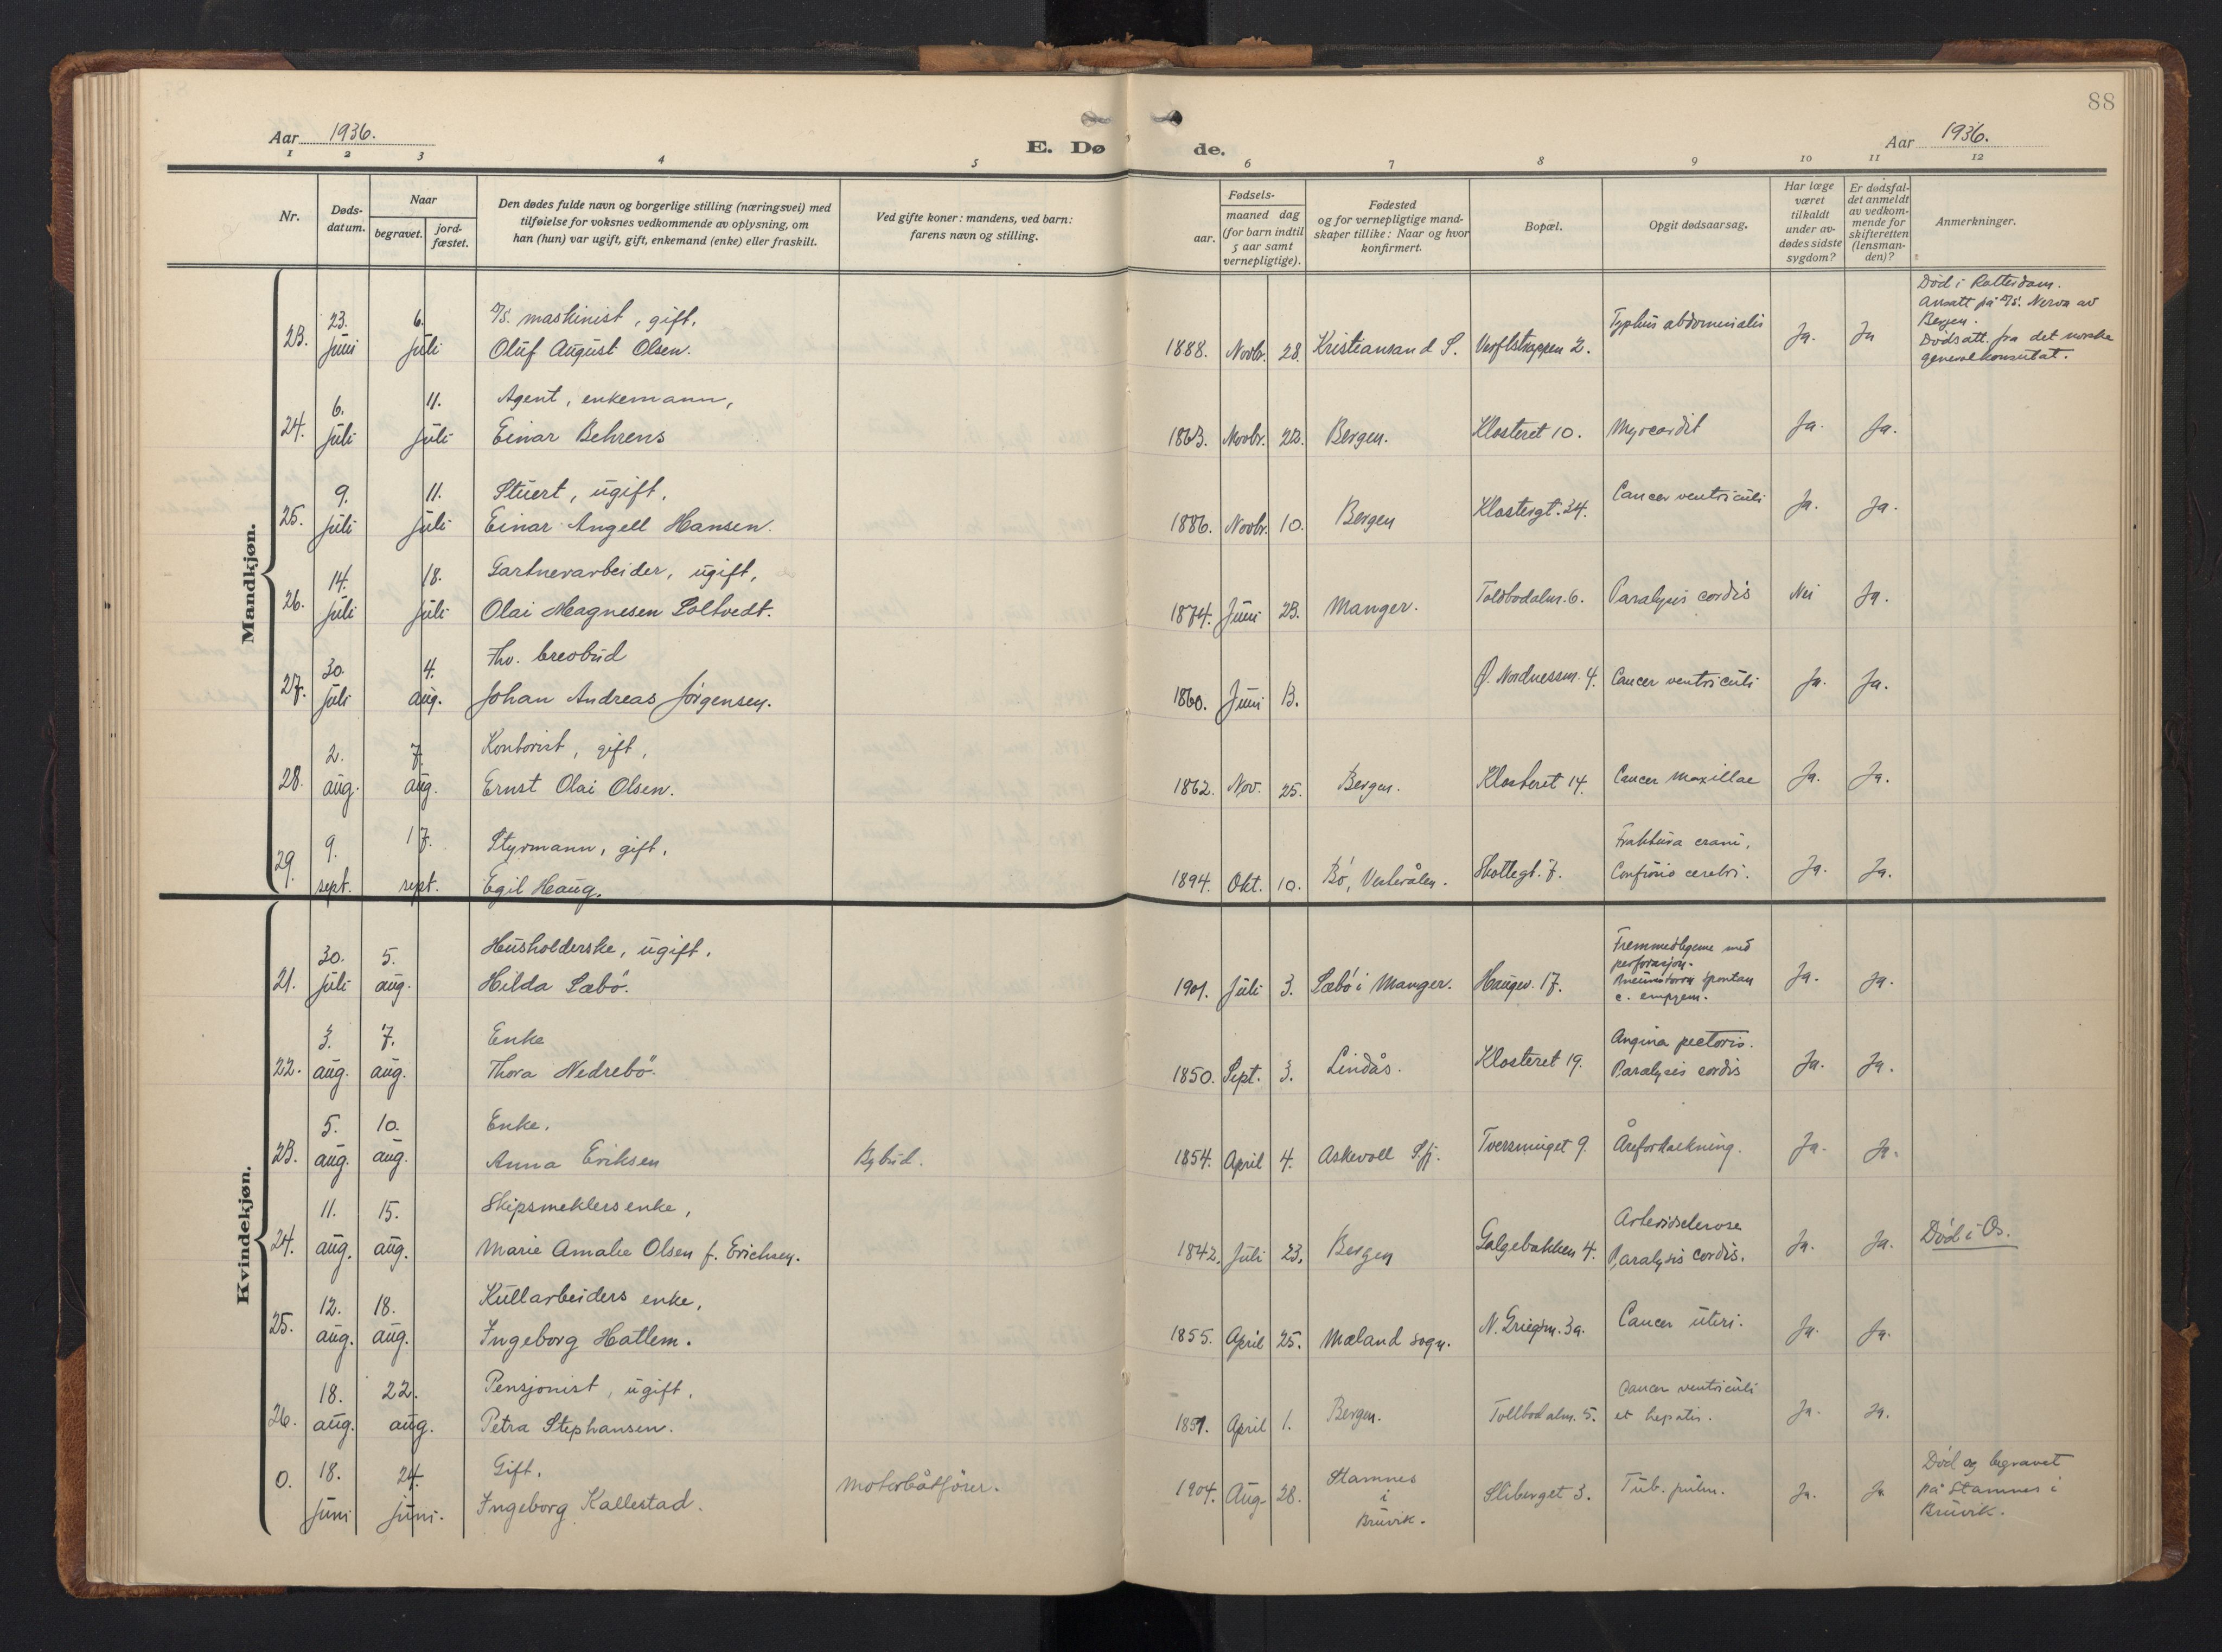 88
Aar 1936.
E. Døde.
Aar 1936.
1 2 3 4 5 6 7 8 9 10 11 12
Nr.
Døds-
datum.
Naar
begravet.
jord-
fæstet.
Den dødes fulde navn og borgerlige stilling (næringsvei) med
tilføielse for voksnes vedkommende av oplysning, om
han (hun) var ugift, gift, enkemand (enke) eller fraskilt.
Ved gifte koner: mandens, ved barn:
farens navn og stilling.
Fødsels-
aar.
maaned dag
(for barn indtil
5 aar samt
vernepligtige).
Fødested
og for vernepligtige mand-
skaper tillike: Naar og hvor
konfirmert.
Bopæl.
Opgit dødsaarsag.
Har læge
været
tilkaldt
under av-
dødes sidste
sygdom?
Er dødsfal-
det anmeldt
av vedkom-
mende for
skifteretten
(lensman-
den)?
Anmerkninger.
Mandkjøn.
23. 23. juni 6. juli
D/S. maskinist, gift.
Oluf August Olsen.
1888. Novbr. 28. Kristiansand S. Verftstrappen 2. Typhus abdominalis Ja. Ja
Død i Rotterdam.
Ansatt på D/S. Nerva av
Bergen.
Dødsatt. fra det norske
generalkonsulat.
24. 6. juli 11. juli
Agent, enkemann,
Einar Behrens
1863. Novbr. 22. Bergen. Klosteret 10. Myocardit Ja. Ja.
25. 9. juli 11. juli
Stuert, ugift.
Einar Angell Hansen.
1886. Novbr. 10. Bergen Klostergt. 34. Cancer ventriculi Ja. Ja.
26. 14. juli 18. juli
Gartnerarbeider, ugift,
Olai Magnesen Soltvedt.
1874. Juni 23. Manger. Toldbodalm. 6. Paralysis cordis Nei Ja.
27. 30. juli 4. aug.
Fhv. breobud
Johan Andreas Jørgensen.
1860. Juni 13. Ø. Nordnessm. 4. Cancer ventriculi Ja. Ja.
28. 2. aug. 7. aug.
Kontorist, gift,
Ernst Olai Olsen.
1862. Nov. 25. Bergen. Klosteret 14. Cancer maxillae Ja. Ja.
29. 9. sept. 17. sept.
Styrmann, gift.
Egil Haug.
1894. Okt. 10. Bø, Vesterålen. Skottegt. 7.
Fraktura crani,
Confusio cerebri.
Ja. Ja.
Kvindekjøn.
21. 30. juli 5. aug.
Husholderske, ugift.
Hilda Sæbø.
1901. Juli 3. Sæbø i Manger. Haugev. 17.
Fremmedlegeme med
perforasjon.
Pneumotorax spontan
c. empyem.
Ja. Ja.
22. 3. aug. 7. aug.
Enke
Thora Nedrebö.
1850. Sept. 3. Lindås. Klosteret 19.
Angina pectoris.
Paralysis cordis
Ja. Ja.
23. 5. aug. 10. aug.
Enke.
Anna Eriksen
Bybud.
1854. April 4. Askevoll S.fj. Tversmuget 9. Åreforkalkning. Ja. Ja.
24. 11. aug. 15. aug.
Skipsmeklers enke,
Marie Amalie Olsen f. Erichsen.
1842. Juli 23. Bergen Galgebakken 4.
Arteriosclerose
Paralysis cordis.
Ja. Ja. Död i Os.
25. 12. aug. 18. aug.
Kullarbeiders enke,
Ingeborg Hatlem.
1855. April 25. Mæland sogn. N. Griegsm. 3a. Cancer uteri. Ja. Ja.
26. 18. aug. 22. aug.
Pensjonist, ugift.
Petra Stephansen.
1851. April 1. Bergen. Tollbodalm. 5.
Cancer ventriculi
et hepatis.
Ja. Ja.
0. 18. juni 24. juni.
Gift.
Ingeborg Kallestad.
Motorbåtfører.
1904. Aug. 28.
Stamnes
i
Bruvik.
Sliberget 3. Tub. pulm. Ja. Ja
Död og begravet
på Stamnes i
Bruvik.